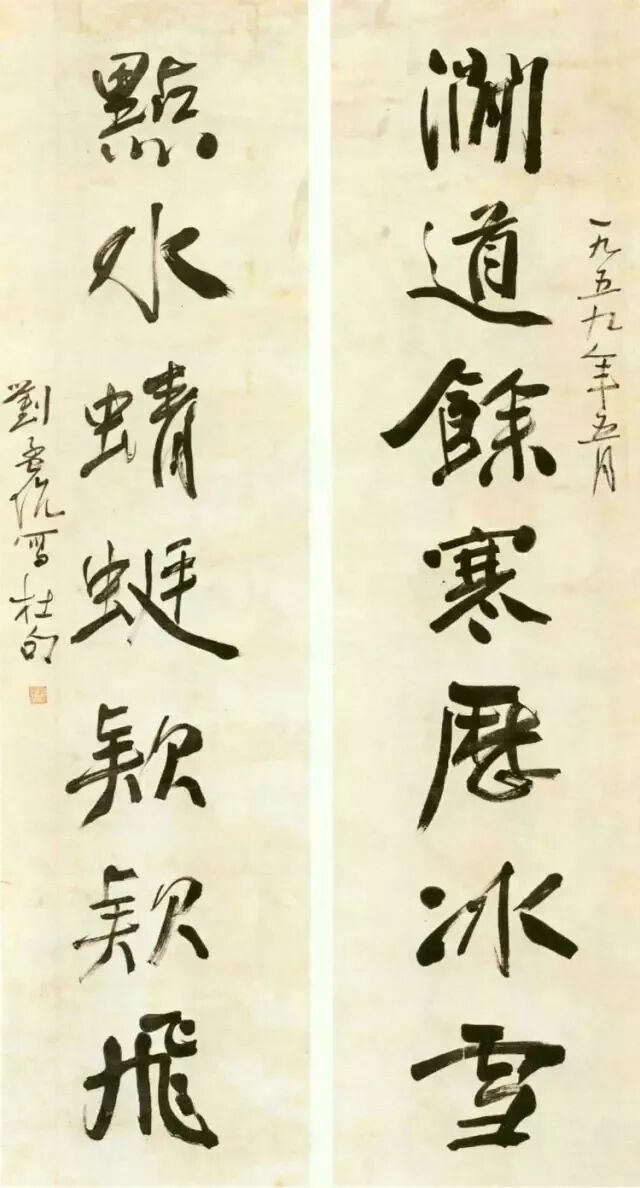 一九五九年五月
澗道餘寒歷冰雪
點水蜻蜓欵欵飛
劉孟伉寫杜句